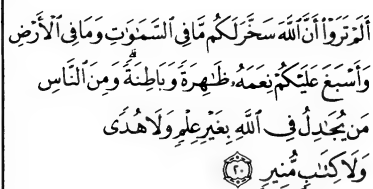 أَلَمْ تَرَوْا۟ أَنَّ ٱللَّهَ سَخَّرَ لَكُم مَّا فِى ٱلسَّمَٰوَٰتِ وَمَا فِى ٱلْأَرْضِ
وَأَسْبَغَ عَلَيْكُمْ نِعَمَهُۥ ظَٰهِرَةً وَبَاطِنَةً ۗ وَمِنَ ٱلنَّاسِ
مَن يُجَٰدِلُ فِى ٱللَّهِ بِغَيْرِ عِلْمٍ وَلَا هُدًى
وَلَا كِتَٰبٍ مُّنِيرٍ ٢٠